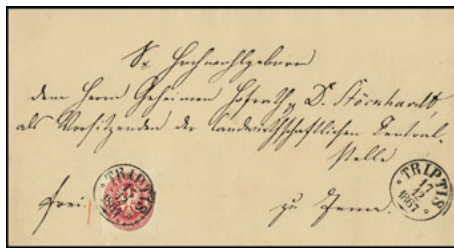 Sr Hochwohlgeboren
dem Herrn Geheimen Hofrath D. Stöckhardt,
als Vorsitzenden der landwirthschaftlichen Central-
stelle
frei.
zu Jena.
TRIPTIS
TRIPTIS
17
12
1867